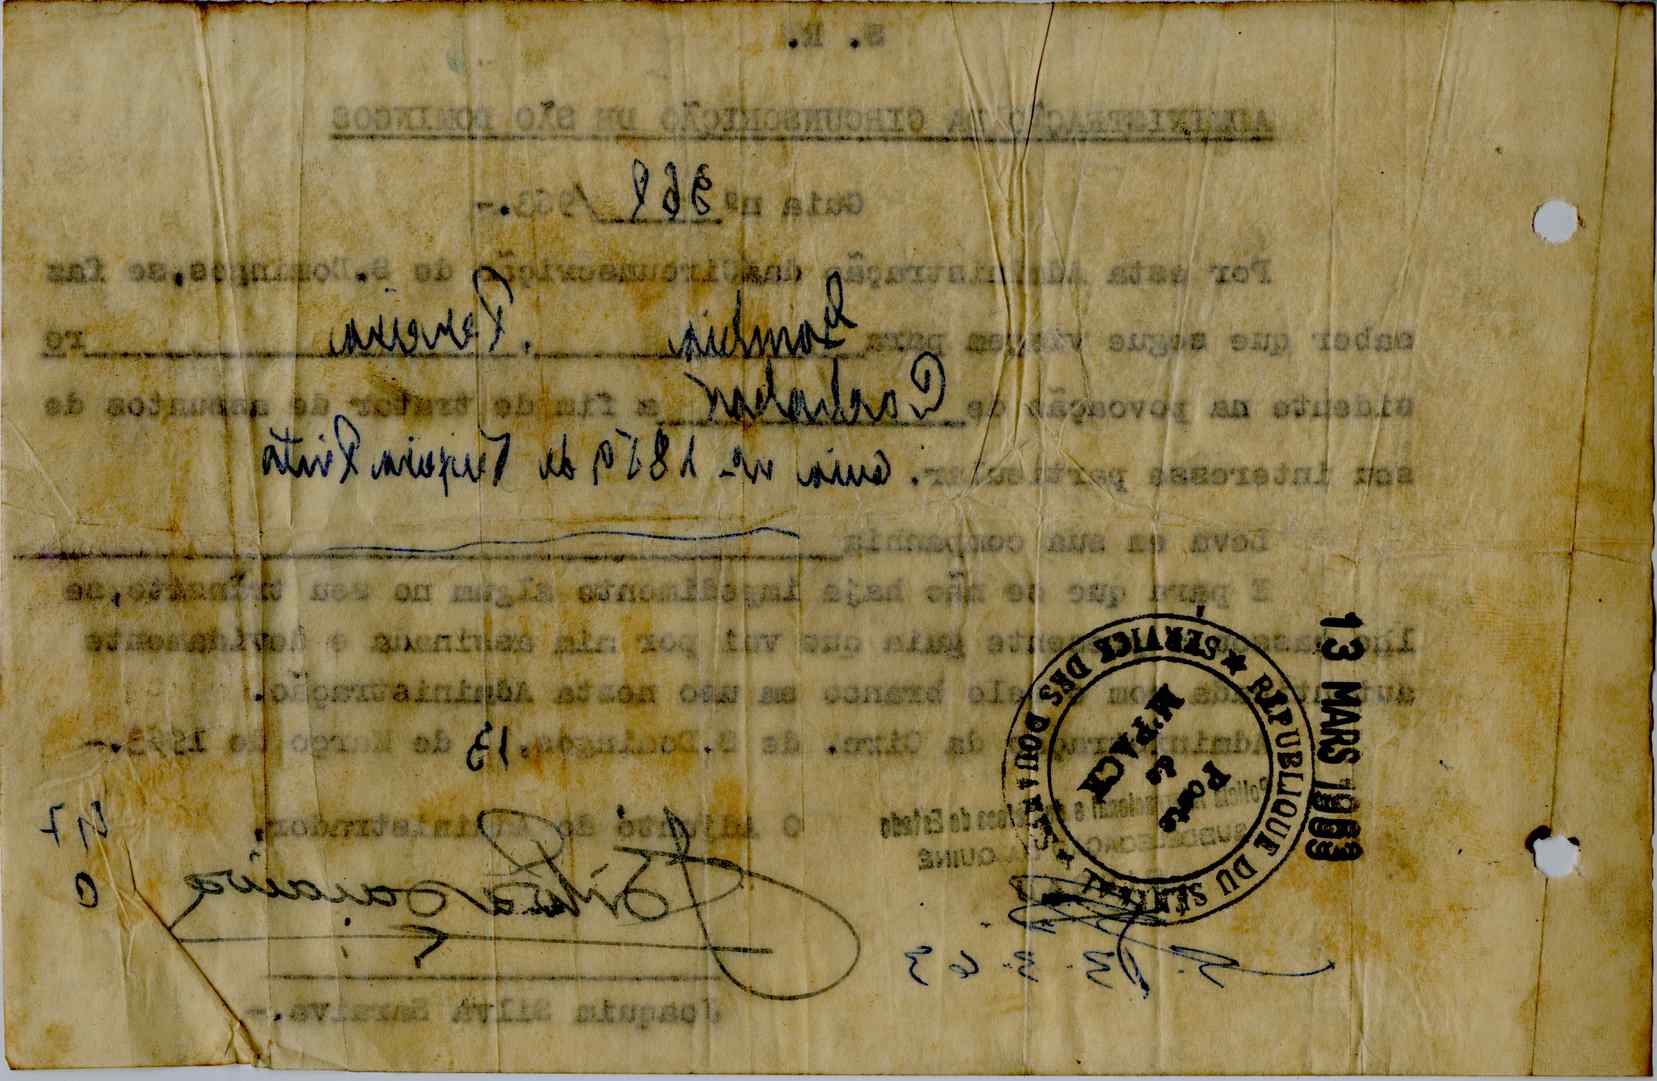 S. R.
ADMINISTRAÇÃO DA CIRCUNSCRIÇÃO DE SÃO DOMINGOS
Guia nº 368 /963.-
Por esta Administração da Circunscrição de S.Domingos,se faz
saber que segue viagem para Pereira re
sidente na povoação de a fim de tratar de assuntos de
seu interesse particular.
Leva em sua companhia
E para que se não haja impedimento algum no seu trânsito,se
lhe passou presente guia que vai por mim assinada e devidamente
autenticada com o selo branco em uso nesta Administração.
Administração da Circ. de S.Domingos, 13 de Março de 1963.-
O Adjunto do Administrador,
Silva Saraiva
Joaquim Silva Saraiva.-
13 MARS 1963
RÉPUBLIQUE DU SÉNÉGAL
SERVICE DES DOUANES
Poste
de
M'PACK
13.3.63